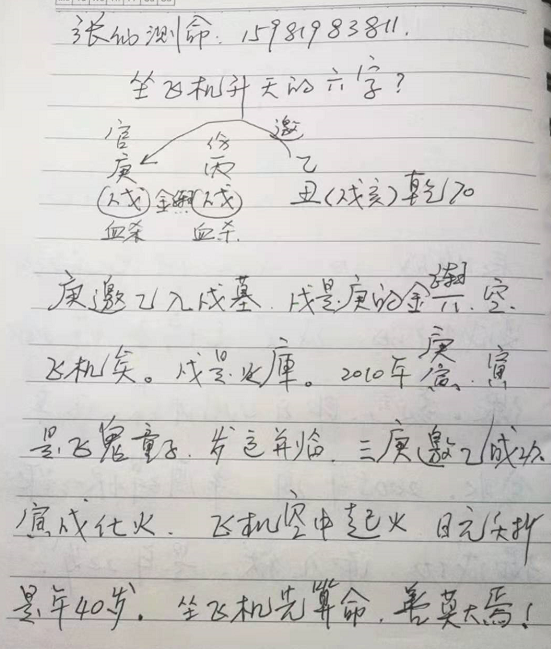 张仙测命:15981983811.
坐飞机升天的六字?
官 份 邀
庚 丙 乙
(戌) 金舆 (戌) 丑(戌亥)乾70
血杀 血杀
庚邀乙入戌墓.戌是庚的金舆六.空.
飞机矣。戌是火库。2010年庚寅.寅
是飞鬼童子.岁运并临.三庚邀乙成功.
寅戌化火.飞机空中起火.日元夭折
是年40岁.坐飞机先算命,善莫大焉!